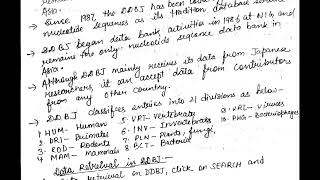 Asia.
Since 1987, the DDBJ has been
nucleotide sequences as its tradition, database
→ DDBJ began data bank activities in 1986 at NIG, and
remains the only nucleotide seqence data bank in
Asia.
→ Although DDBJ mainly receives its data from Japanese
researchers, it can accept data from contributors
from any other country.
→ DDBJ classifies entries into 21 divisions as below-
1 HUM- Human 5. VRT- Vertebrate 9. VRL- viruses
2 PRI- Primates 6- INV- Invertebrates 10. PHG- Bacteriophages
3. ROD- Rodents 7. PLN- Plants, fungi,
4 MAM- Mammals 8- BCT- Bacteria
Data Retrieval in DDBJ:-
retrieval on DDBJ, click on SEARCH and